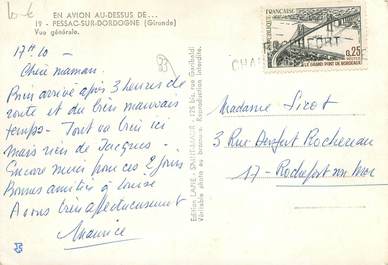 EN AVION AU-DESSUS DE...
19 - PESSAC-SUR-DORDOGNE (Gironde)
Vue générale.
17h10 -
Chère maman,
Bien arrivé après 3 heures de
route et du très mauvais
temps - Tout va bien ici
Mais rien de Jacques -
Encore merci pour ces 2 jours
Bonnes amitiés à Louise
A vous bien affectueusement
Maurice
Edition LAPIE, SAINT-MAUR, 125 bis, rue Garibaldi
Véritable photo au bromure. Reproduction interdite.
REPUBLIQUE FRANÇAISE
0,25
POSTES
LE GRAND PONT DE BORDEAUX
Madame Sirot
3 Rue Denfert Rochereau
17 - Rochefort sur mer